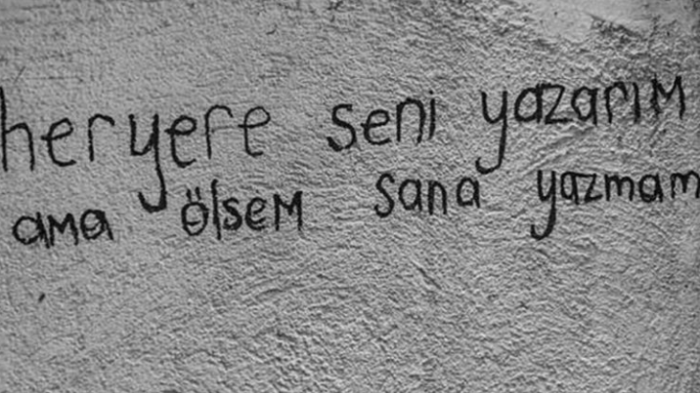 heryere seni yazarım
ama ölsem sana yazmam